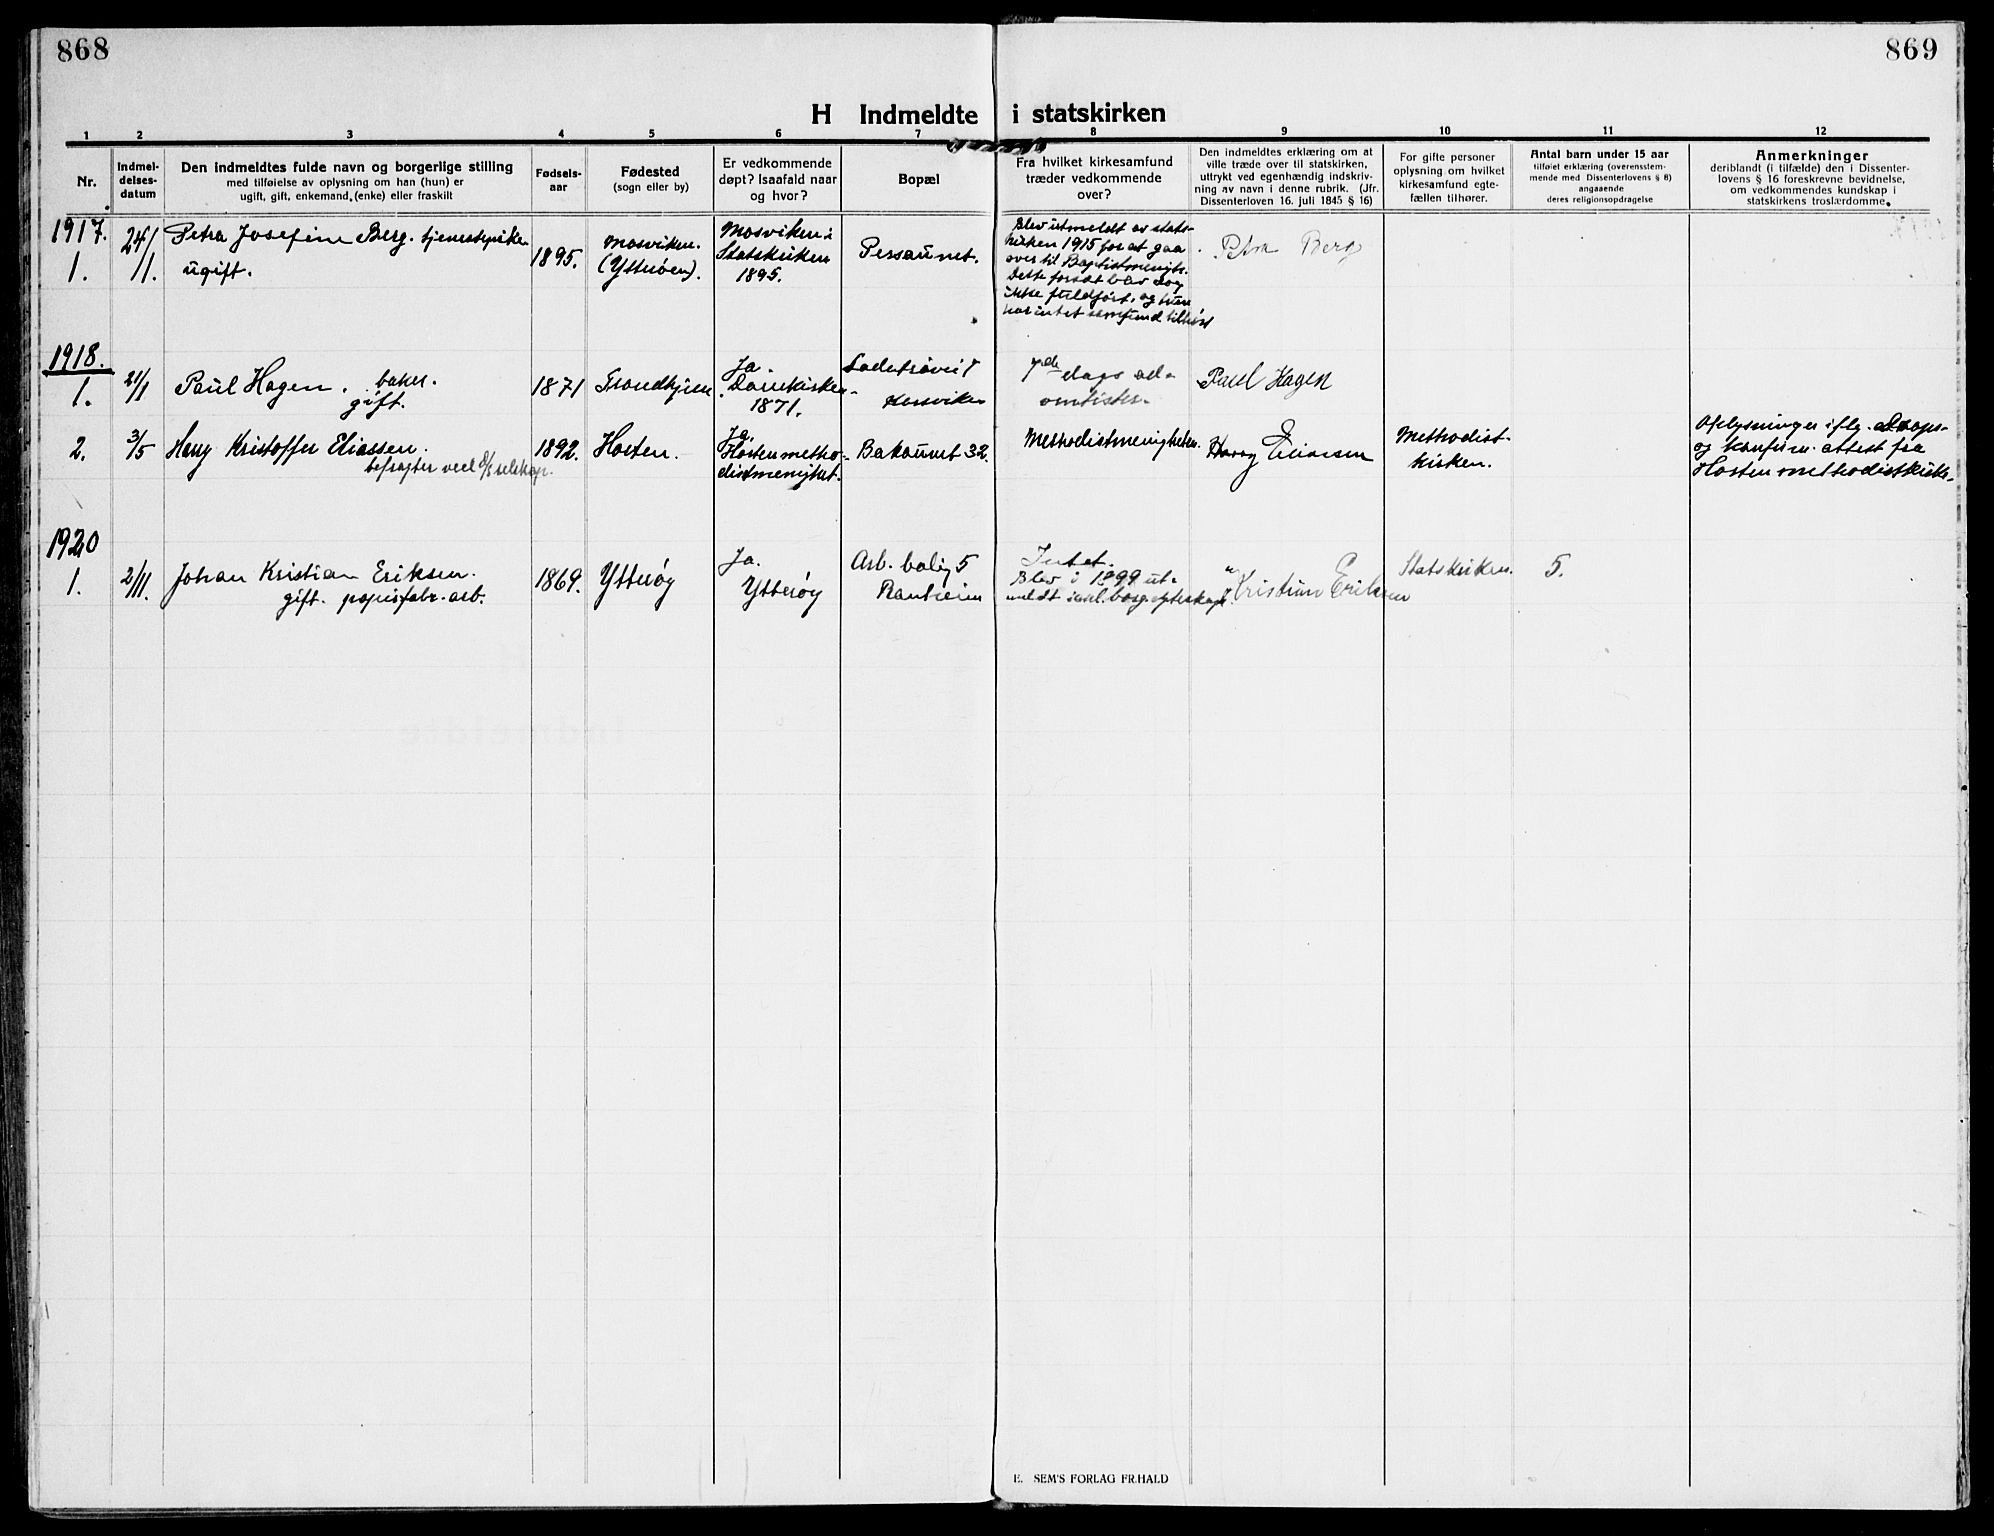 868
869
H Indmeldte i statskirken
1 2 3 4 5 6 7 8 9 10 11 12
Nr.
Indmel-
delses-
datum
Den indmeldtes fulde navn og borgerlige stilling
med tilføielse av oplysning om han (hun) er
ugift, gift, enkemand, (enke) eller fraskilt
Fødsels-
aar
Fødested
(sogn eller by)
Er vedkommende
døpt? Isaafald naar
og hvor?
Bopæl
Fra hvilket kirkesamfund
træder vedkommende
over?
Den indmeldtes erklæring om at
ville træde over til statskirken,
uttrykt ved egenhændig indskriv-
ning av navn i denne rubrik. (Jfr.
Dissenterloven 16. juli 1845 § 16)
For gifte personer
oplysning om hvilket
kirkesamfund egte-
fællen tilhører.
Antal barn under 15 aar
tilføiet erklæring (overensstem-
mende med Dissenterlovens § 8)
angaaende
deres religionsopdragelse
Anmerkninger
deriblandt (i tilfælde) den i Dissenter-
lovens § 16 foreskrevne bevidnelse,
om vedkommendes kundskap i
statskirkens troslærdomme.
1917.
1.
24/11.
Petra Josefine Berg. tjenestepike.
ugift.
1895.
Mosviken.
(Ytterøen).
Mosviken i
Statskirken
1895.
Persaunet.
Blev utmeldt av stats-
kirken 1915 for at gaa
over til Baptistmenigh.
Dette forsæt blev dog
ikke fuldført, og hun
har intet samfund tilhørt
Petra Berg
1918.
1.
21/1
Paul Hagen. baker.
gift.
1871
Trondhjem
Ja.
Domkirken
1871.
7de dags ad-
ventister.
Paul Hagen
2.
3/5
Kristoffer Eliassen.
befragter ved d/s selskap.
1892.
Horten.
Ja.
Horten metho-
distmenighet.
Bakaunet 32.
Methodistmenigheten.
Harry Eliassen
Methodist-
kirken.
Oplysninger iflg. daaps-
og konfirm. attest fra
Horten methodistkirke.
1920
1.
2/11.
Johan Kristian Eriksen.
gift. papirfabr. arb.
1869.
Ytterøy
Ja.
Ytterøy
Arb. bolig 5
Ranheim
Intet.
Blev i 1899 ut-
meldt
Kristian Eriksen
Statskirken.
5.
E. SEM'S FORLAG FR.HALD